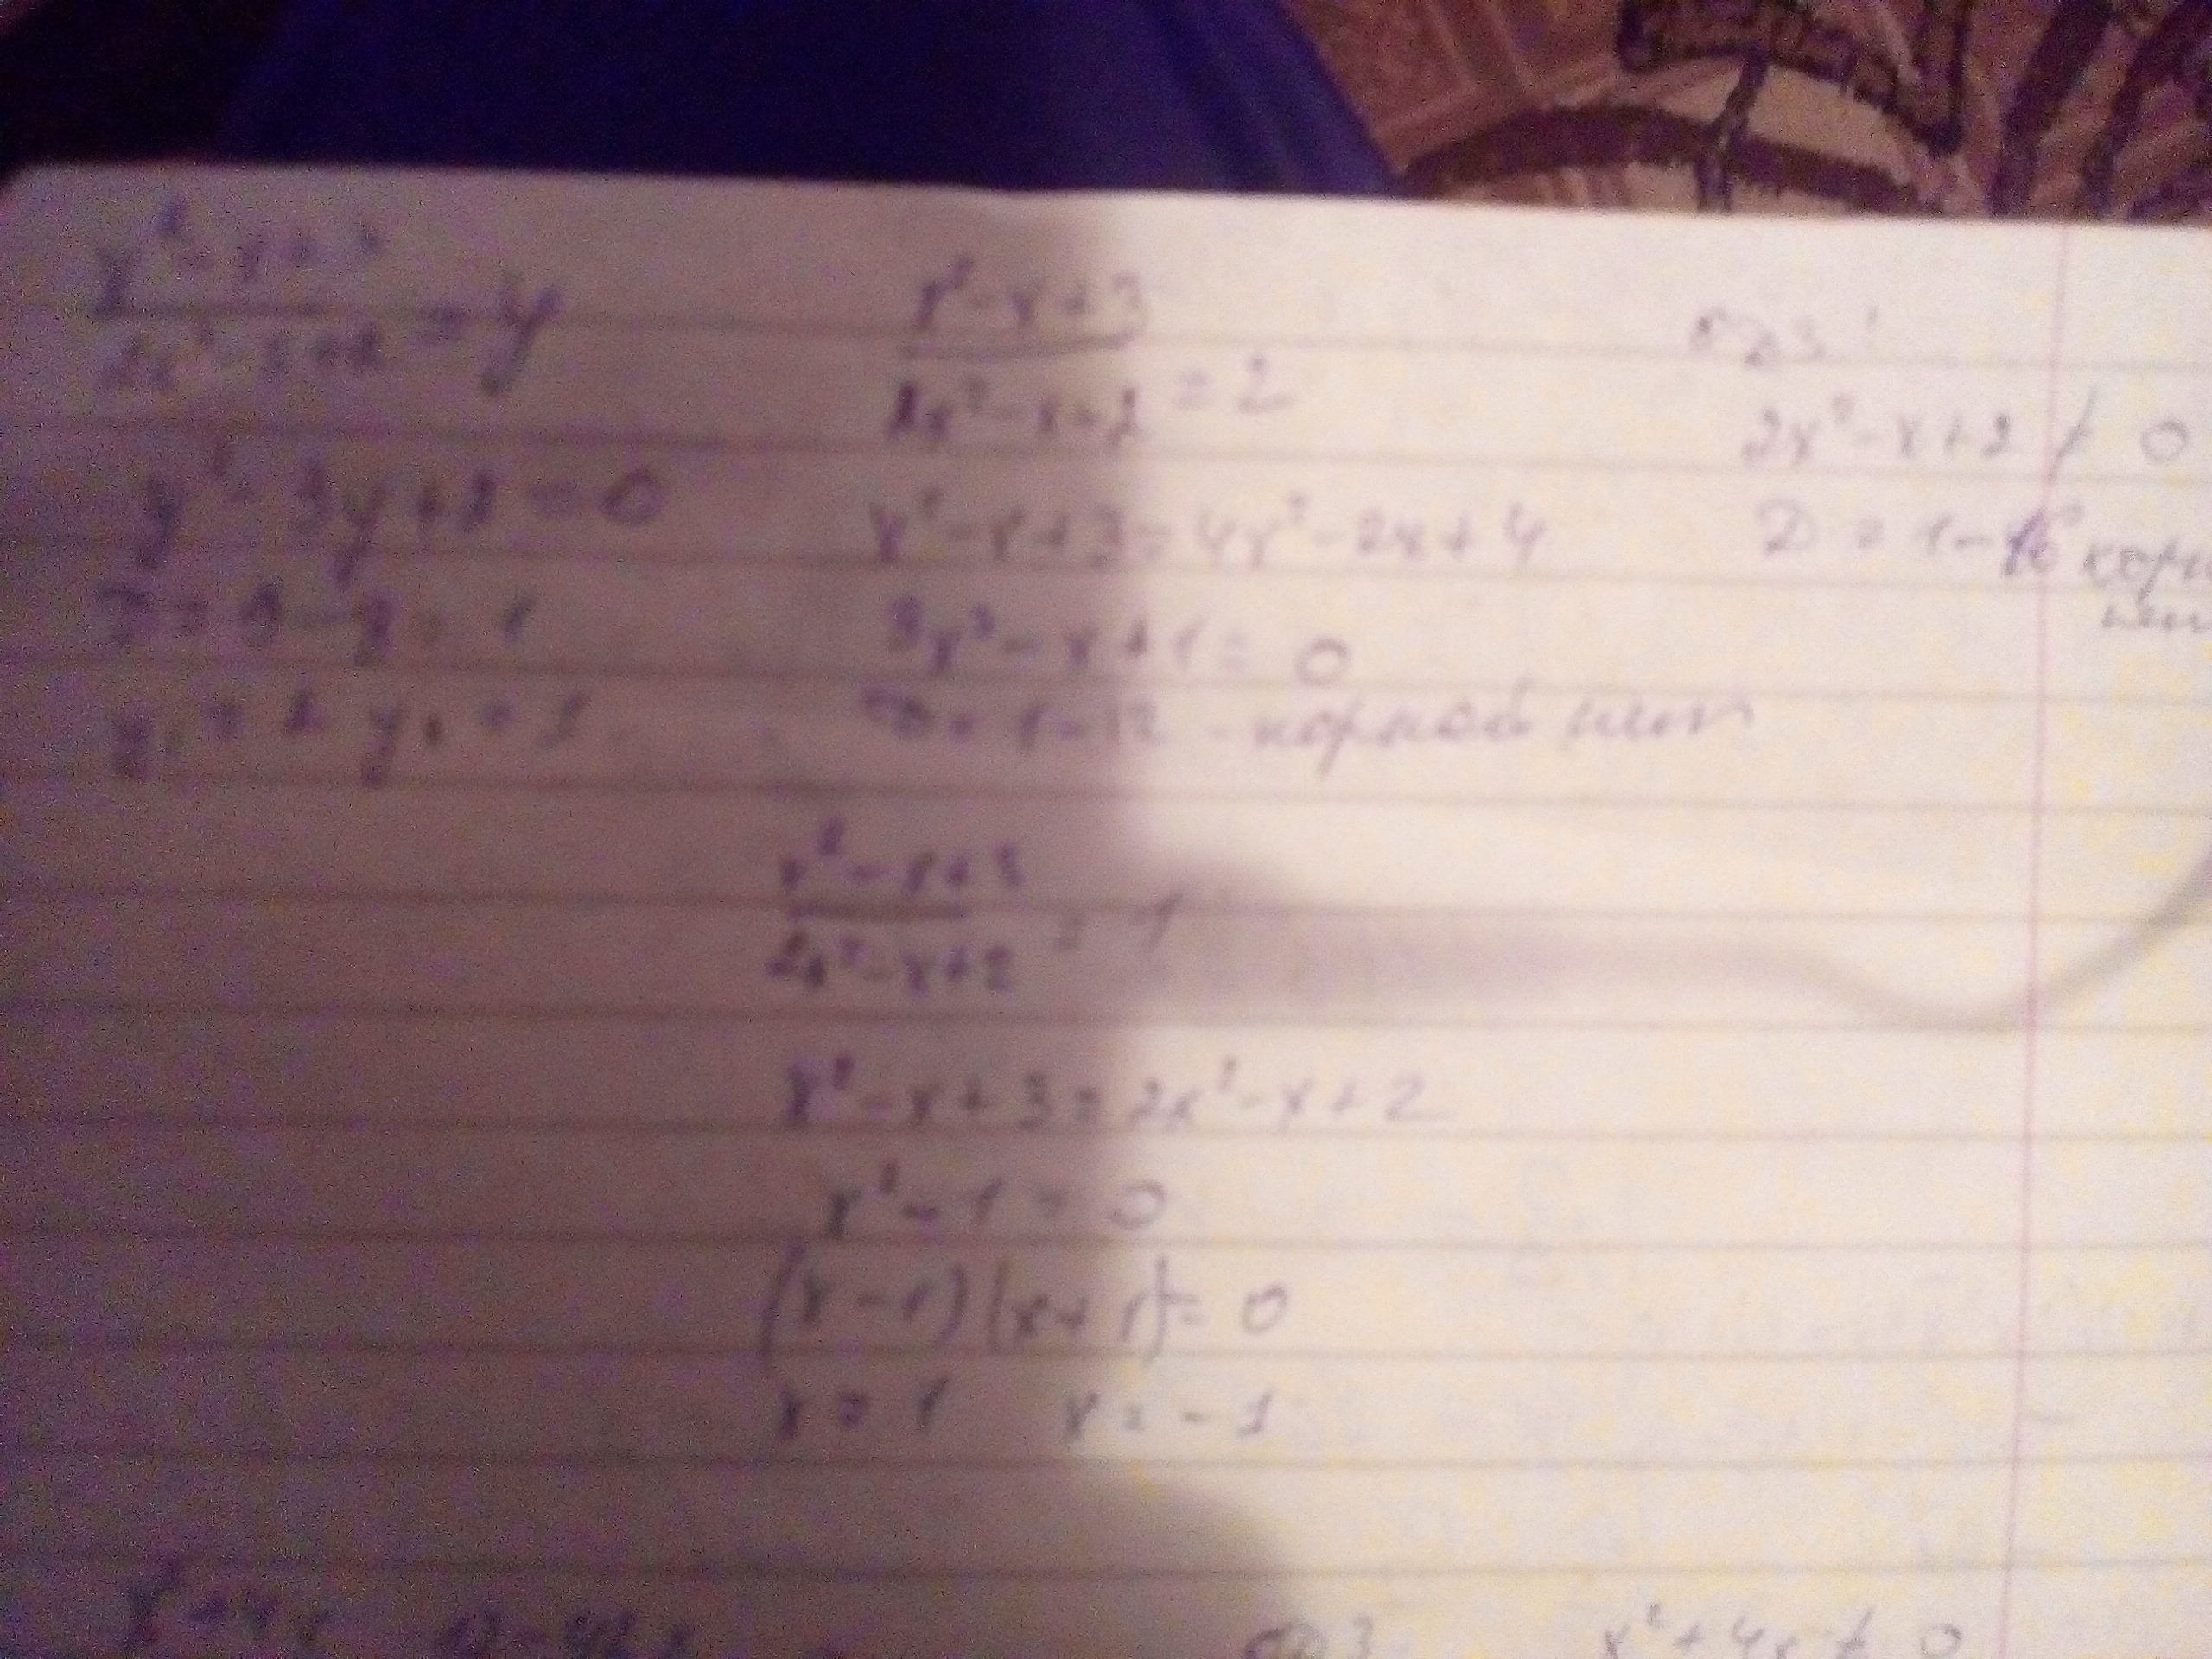 x² - x + 3 / 2x² - x + 2 = y
y² - 3y + 2 = 0
D = 9 - 8 = 1
y₁ = 2 y₂ = 1
x² - x + 3 / 2x² - x + 2 = 2
x² - x + 3 = 4x² - 2x + 4
3x² - x + 1 = 0
D = 1 - 12 - корней нет
ОДЗ:
2x² - x + 2 ≠ 0
D = 1 - 16
x² - x + 3 / 2x² - x + 2 = 1
x² - x + 3 = 2x² - x + 2
x² - 1 = 0
(x - 1)(x + 1) = 0
x = 1 x = -1
x² + 4x
ОДЗ x² + 4x ≠ 0